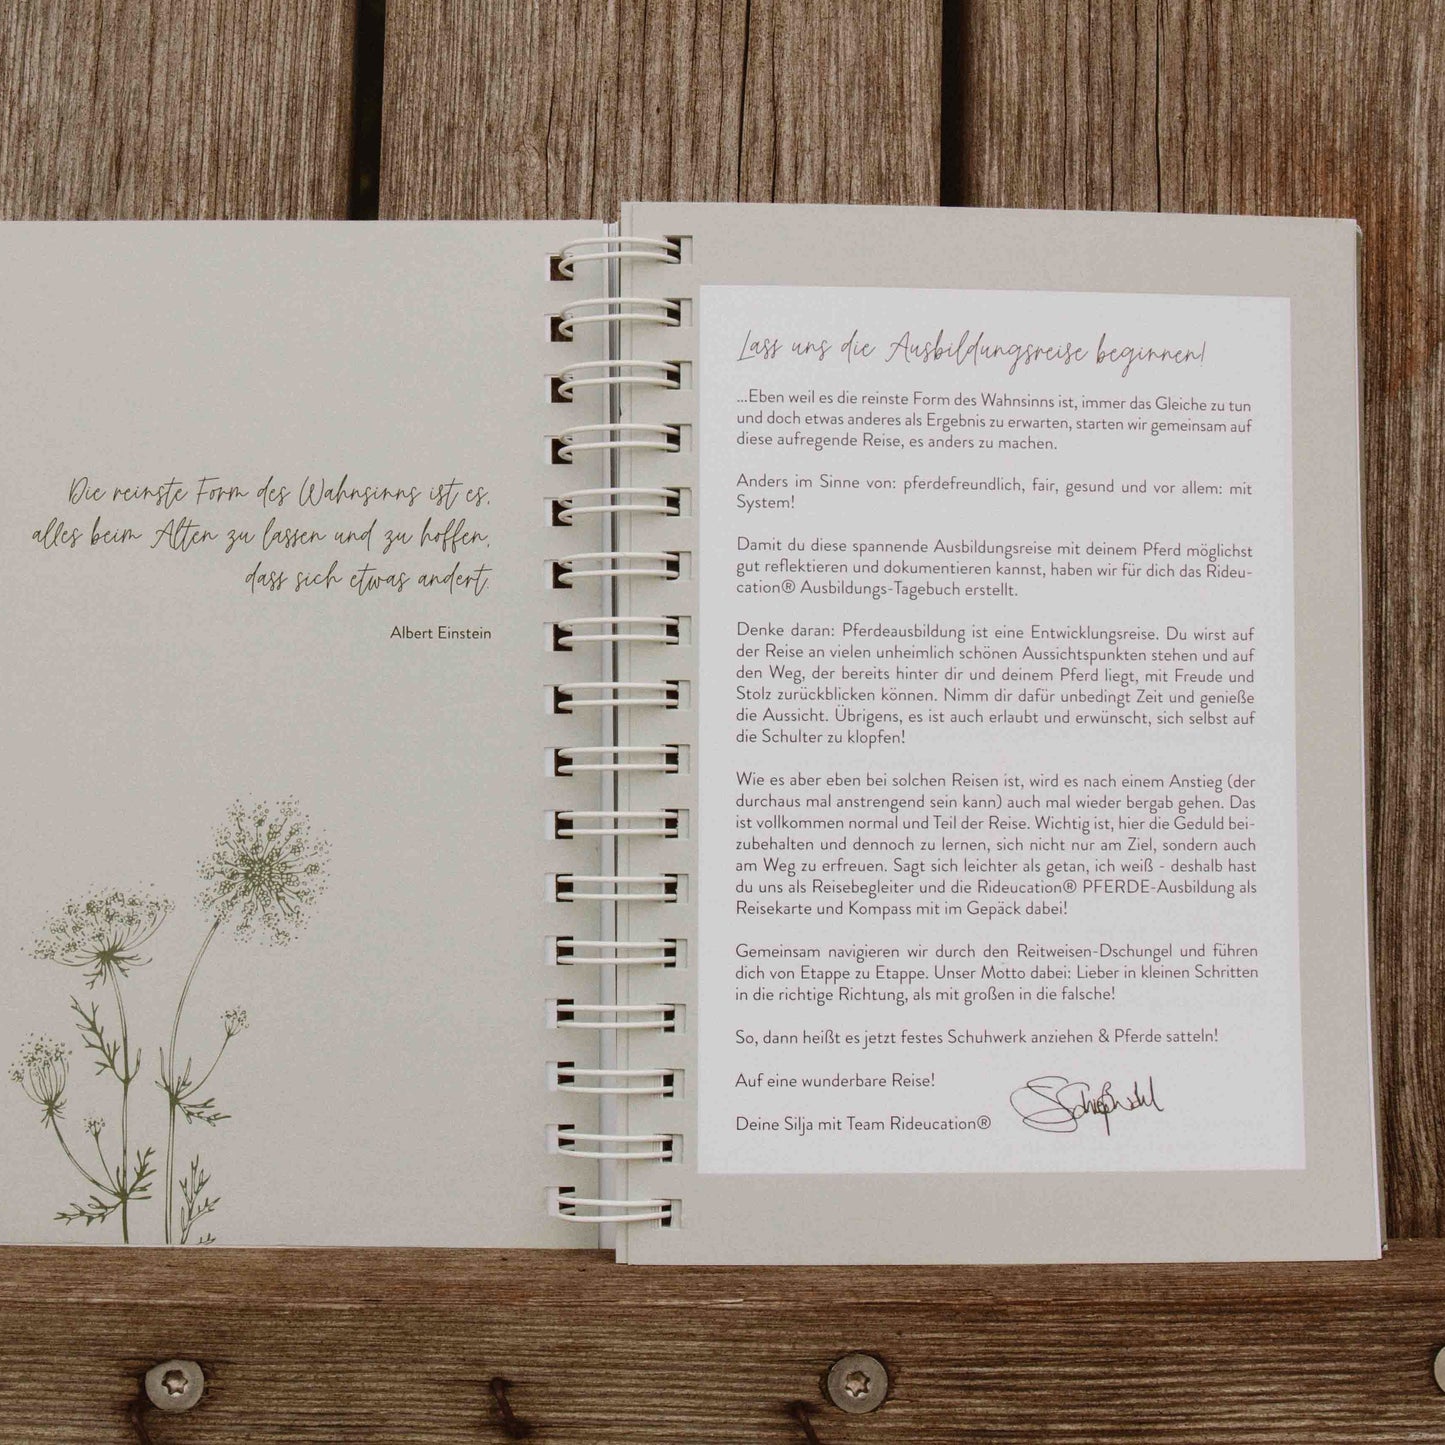 Die reinste Form des Wahnsinns ist es,
alles beim Alten zu lassen und zu hoffen,
dass sich etwas ändert.
Albert Einstein
Lass uns die Ausbildungsreise beginnen!
...Eben weil es die reinste Form des Wahnsinns ist, immer das Gleiche zu tun
und doch etwas anderes als Ergebnis zu erwarten, starten wir gemeinsam auf
diese aufregende Reise, es anders zu machen.
Anders im Sinne von: pferdefreundlich, fair, gesund und vor allem: mit
System!
Damit du diese spannende Ausbildungsreise mit deinem Pferd möglichst
gut reflektieren und dokumentieren kannst, haben wir für dich das Rideu-
cation® Ausbildungs-Tagebuch erstellt.
Denke daran: Pferdeausbildung ist eine Entwicklungsreise. Du wirst auf
der Reise an vielen unheimlich schönen Aussichtspunkten stehen und auf
den Weg, der bereits hinter dir und deinem Pferd liegt, mit Freude und
Stolz zurückblicken können. Nimm dir dafür unbedingt Zeit und genieße
die Aussicht. Übrigens, es ist auch erlaubt und erwünscht, sich selbst auf
die Schulter zu klopfen!
Wie es aber eben bei solchen Reisen ist, wird es nach einem Anstieg (der
durchaus mal anstrengend sein kann) auch mal wieder bergab gehen. Das
ist vollkommen normal und Teil der Reise. Wichtig ist, hier die Geduld bei-
zubehalten und dennoch zu lernen, sich nicht nur am Ziel, sondern auch
am Weg zu erfreuen. Sagt sich leichter als getan, ich weiß - deshalb hast
du uns als Reisebegleiter und die Rideucation® PFERDE-Ausbildung als
Reisekarte und Kompass mit im Gepäck dabei!
Gemeinsam navigieren wir durch den Reitweisen-Dschungel und führen
dich von Etappe zu Etappe. Unser Motto dabei: Lieber in kleinen Schritten
in die richtige Richtung, als mit großen in die falsche!
So, dann heißt es jetzt festes Schuhwerk anziehen & Pferde satteln!
Auf eine wunderbare Reise!
Deine Silja mit Team Rideucation®